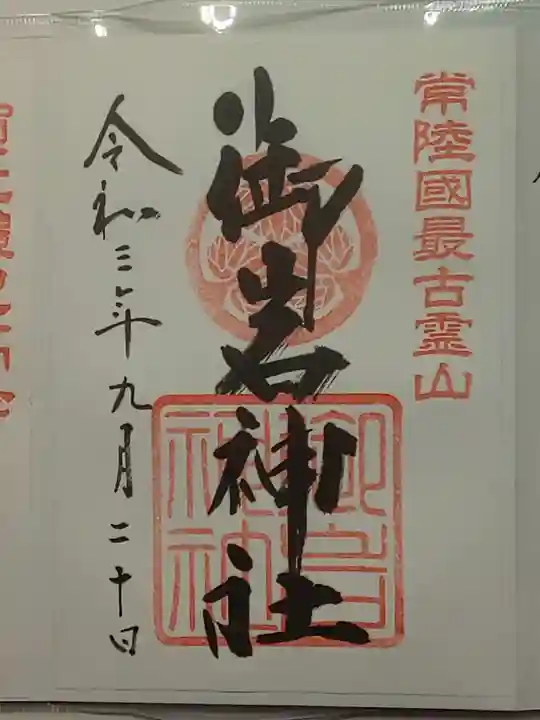 常陸國最古霊山
御岩神社
御岩
神社
令和三年九月二十日